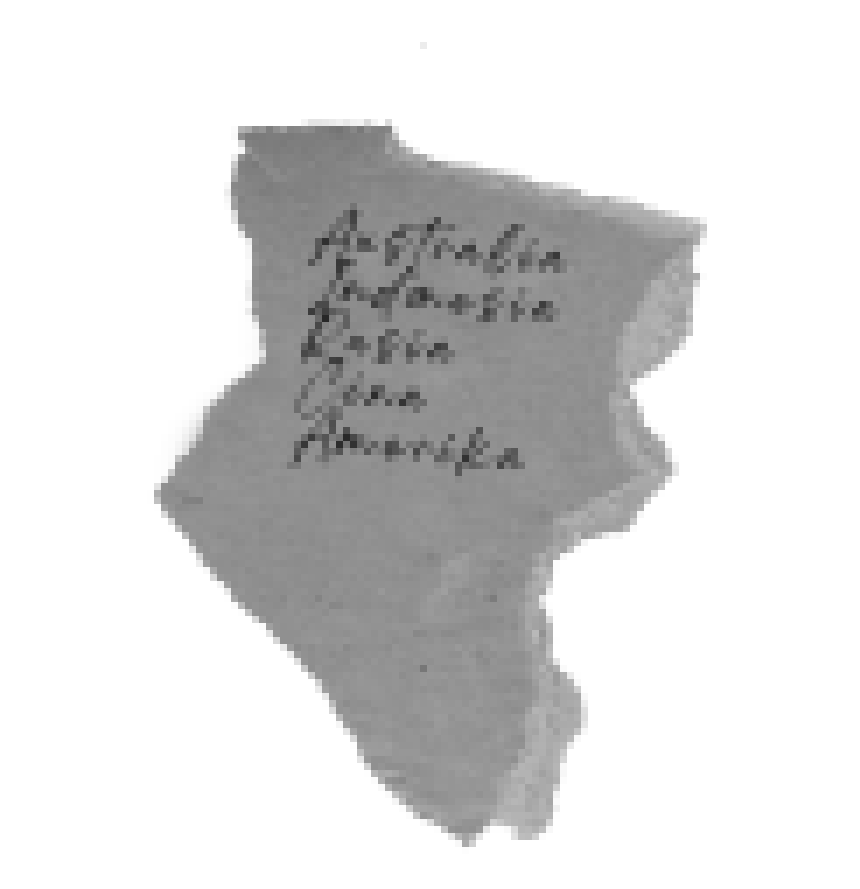 Australia
Indonesia
Rusia
Cina
Amerika